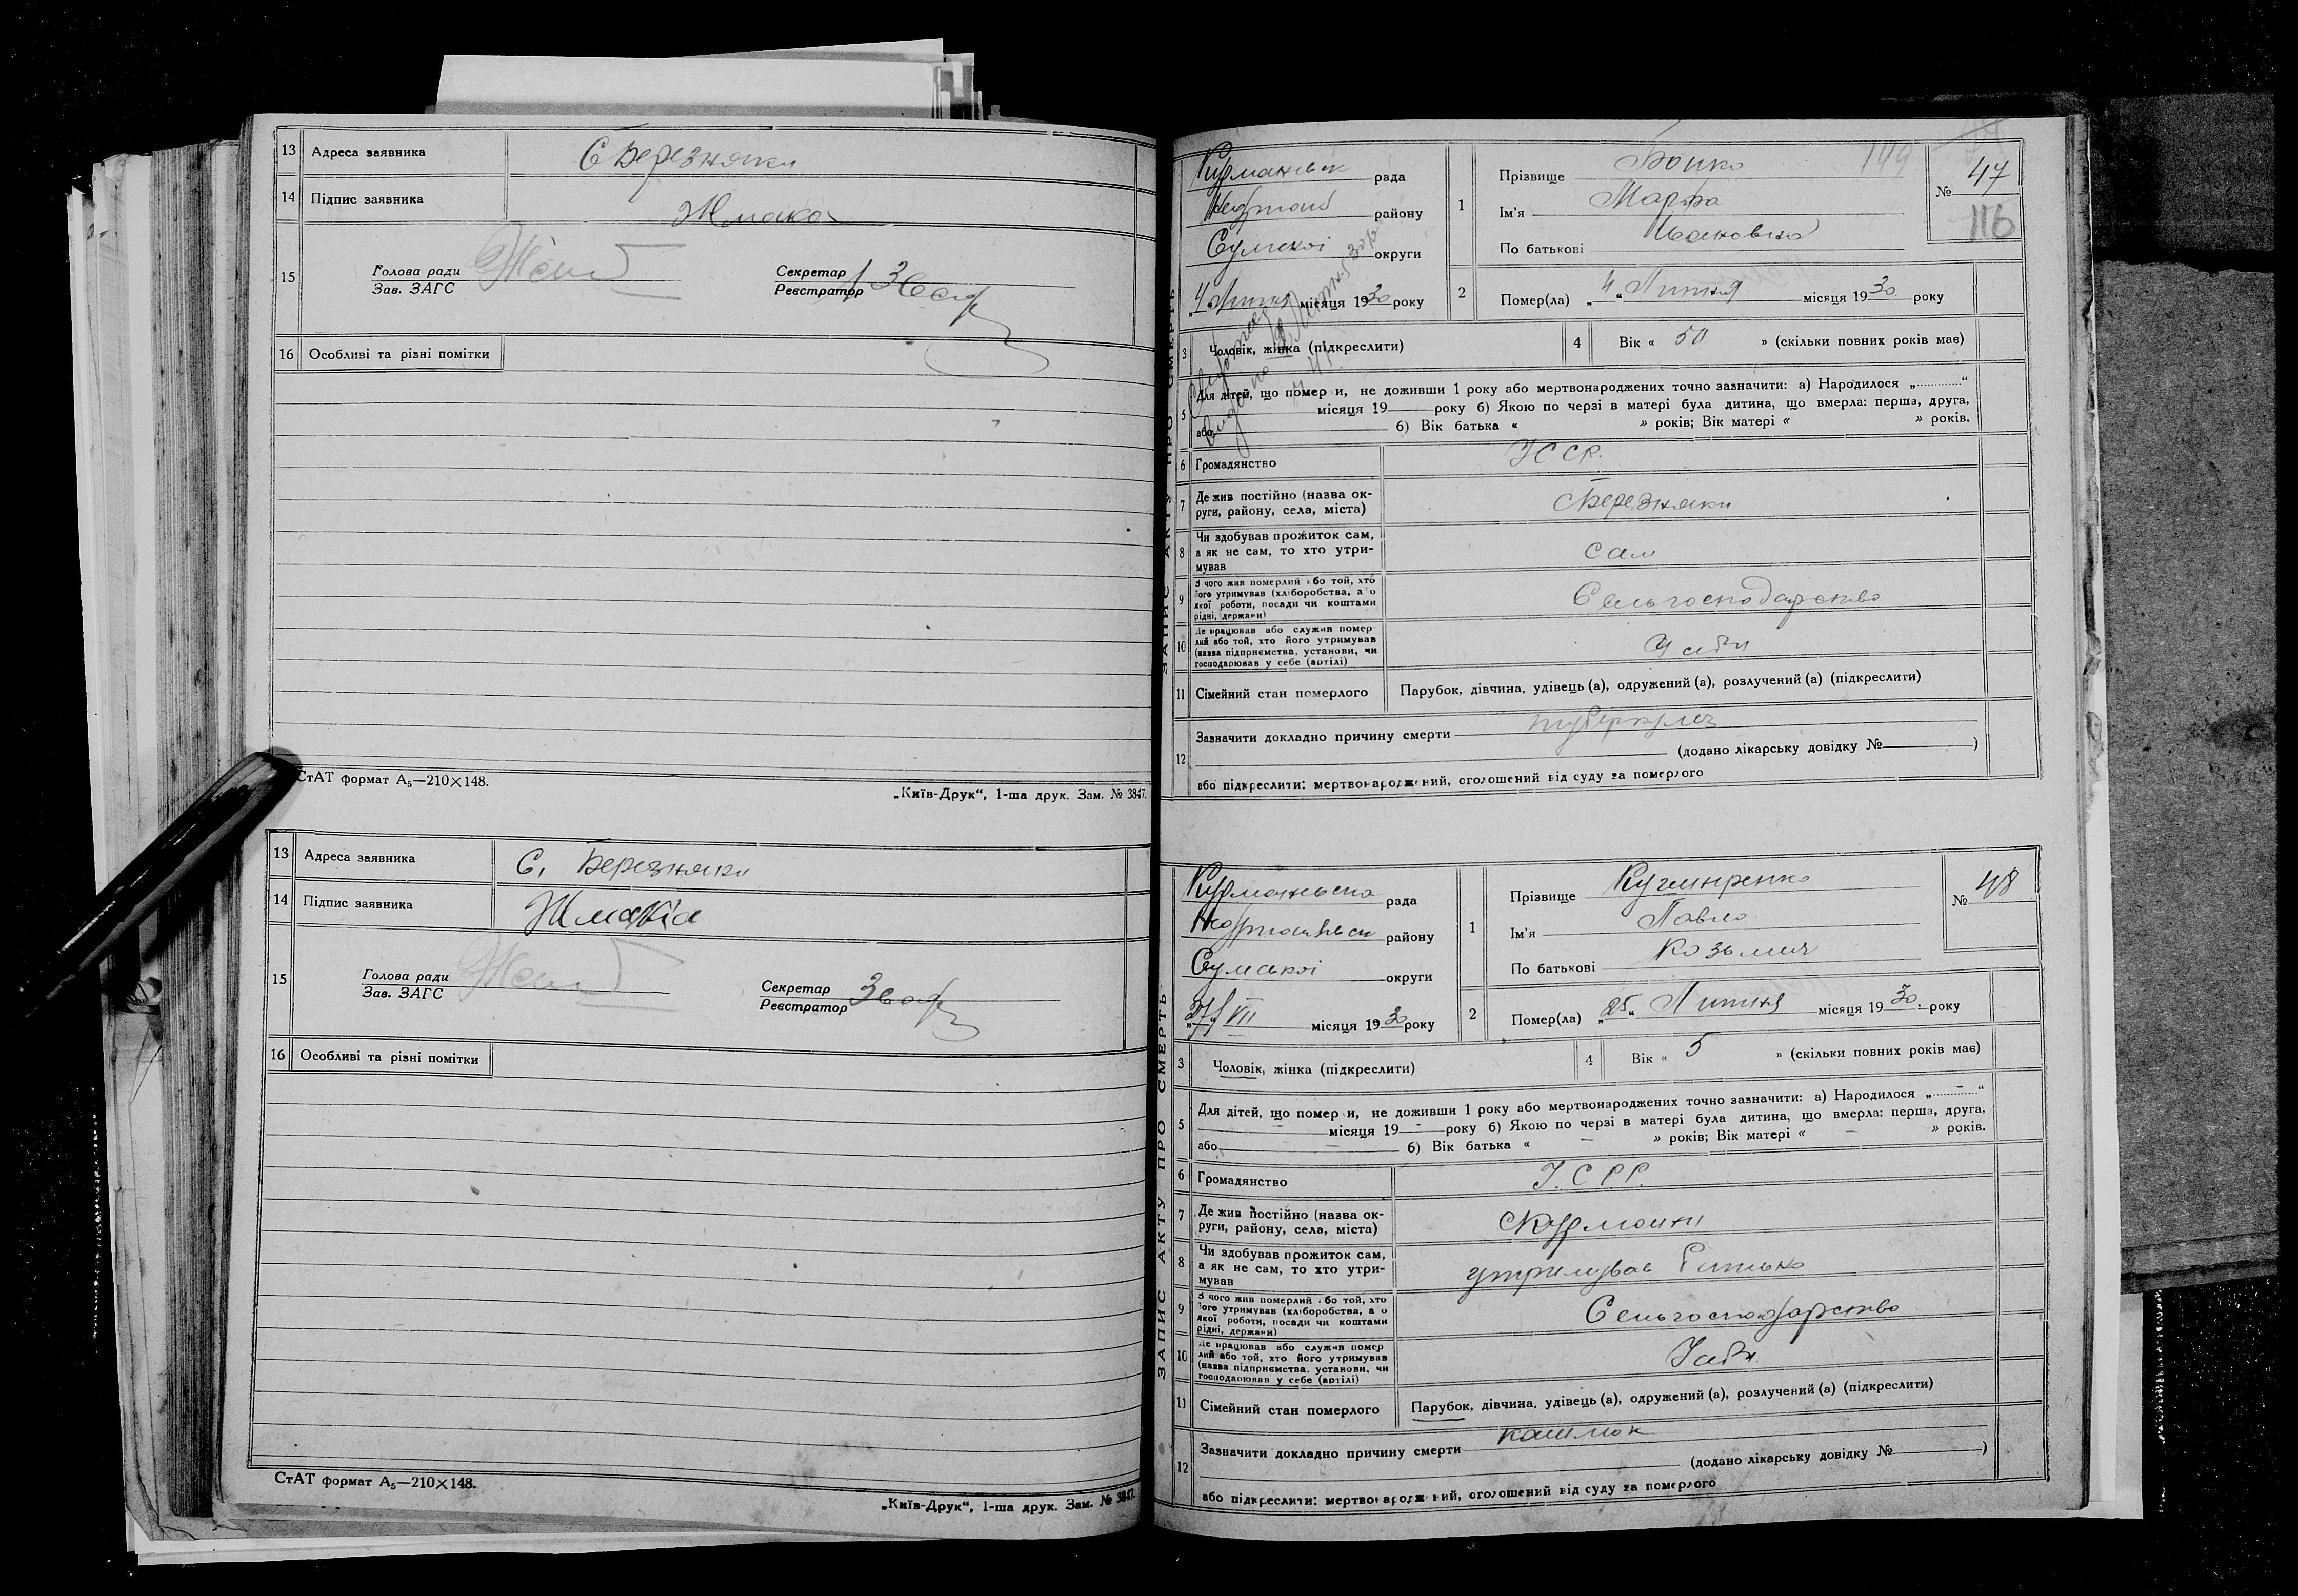 13 Адреса заявника С Березняки
14 Підпис заявника Жмака
15 Голова ради
Зав. ЗАГС
Секретар
Реєстратор
16 Особливі та різні помітки
СтАТ формат А₅—210×148.
„Київ-Друк“, 1-ша друк. Зам. № 3847.
13 Адреса заявника С. Березняки
14 Підпис заявника Жмака
15 Голова ради
Зав. ЗАГС
Секретар
Реєстратор
16 Особливі та різні помітки
СтАТ формат А₅—210×148.
„Київ-Друк“, 1-ша друк. Зам. № 3847.
ЗАПИС АКТУ ПРО СМЕРТЬ
рада
району
Сумської округи
„4“ Липня місяця 1930 року
1 Прізвище Бойко
Ім'я Марфа
По батькові
149
№ 47
116
2 Помер(ла) „4“ Липня місяця 1930 року
3 Чоловік, жінка (підкреслити)
4 Вік « 50 » (скільки повних років має)
5 Для дітей, що померли, не доживши 1 року або мертвонароджених точно зазначити: а) Народилося „ “
місяця 19 року б) Якою по черзі в матері була дитина, що вмерла: перша, друга,
або б) Вік батька « » років; Вік матері « » років.
6 Громадянство УССР.
7 Де жив постійно (назва округи, району, села, міста) С Березняки
8 Чи здобував прожиток сам, а як не сам, то хто утримував сам
9 З чого жив померлий або той, хто його утримував (хліборобства, або якої роботи, посади чи коштами рідні, держави) Сельгосподарство
10 Де працював або служив померлий або той, хто його утримував (назва підприємства, установи, чи господарював у себе (артілі)) У себи
11 Сімейний стан померлого Парубок, дівчина, удівець (а), одружений (а), розлучений (а) (підкреслити)
12 Зазначити докладно причину смерти туберкульоз
(додано лікарську довідку № )
або підкреслити: мертвонароджений, оголошений від суду за померлого
ЗАПИС АКТУ ПРО СМЕРТЬ
Курманьська рада
району
Сумської округи
„27“ VII місяця 1930 року
1 Прізвище
Ім'я Павло
По батькові Козьмич
№ 48
2 Помер(ла) „25“ Липня місяця 1930. року
3 Чоловік, жінка (підкреслити)
4 Вік « 5 » (скільки повних років має)
5 Для дітей, що померли, не доживши 1 року або мертвонароджених точно зазначити: а) Народилося „ – “
– місяця 19 – року б) Якою по черзі в матері була дитина, що вмерла: перша, друга,
або б) Вік батька « – » років; Вік матері « – » років.
6 Громадянство У.С.Р.Р.
7 Де жив постійно (назва округи, району, села, міста) С Курмани
8 Чи здобував прожиток сам, а як не сам, то хто утримував утримував батько
9 З чого жив померлий або той, хто його утримував (хліборобства, або якої роботи, посади чи коштами рідні, держави) Сельгосподарство
10 Де працював або служив померлий або той, хто його утримував (назва підприємства, установи, чи господарював у себе (артілі)) У себи
11 Сімейний стан померлого Парубок, дівчина, удівець (а), одружений (а), розлучений (а) (підкреслити)
12 Зазначити докладно причину смерти кашлюк
(додано лікарську довідку № )
або підкреслити: мертвонароджений, оголошений від суду за померлого